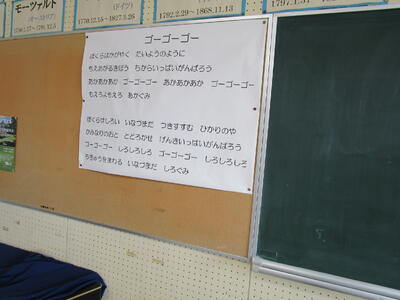 モーツァルト
(オーストリア)
(ドイツ)
1770.12.15~1827.3.26
1792.2.29~1868.11.13
1797.1.31~
ゴーゴーゴー
ぼくらはかがやく たいようのように
もえあがるきぼう ちからいっぱいがんばろう
あかあかあか ゴーゴーゴー あかあかあか ゴーゴーゴー
もえろよもえろ あかぐみ
ぼくらはしろい いなづまだ つきすすむ ひかりのや
かみなりのおと とどろかせ げんきいっぱいがんばろう
ゴーゴーゴー しろしろしろ ゴーゴーゴー しろしろしろ
ちきゅうをまわる いなづまだ しろぐみ